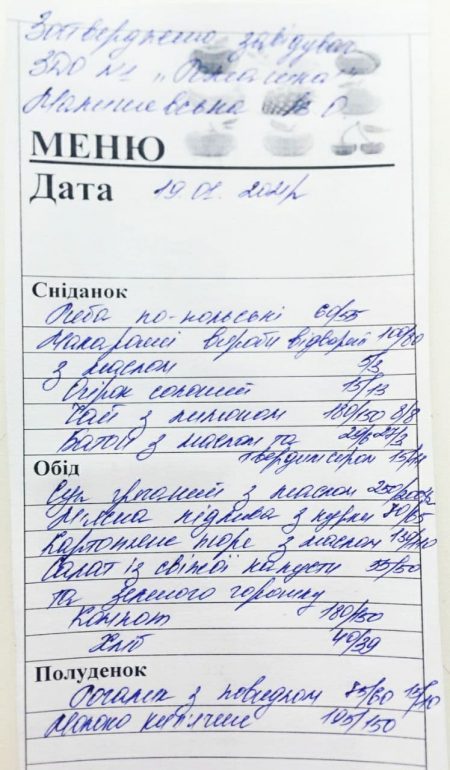 Затверджено завідувач
ЗДО №1
МЕНЮ
Дата 19.01.2021р
Сніданок
Риба по-польські 60/55
Макаронні вироби відварні 100/80
з маслом 5/3
Огірок солоний 15/13
Чай з лимоном 180/150 8/8
Батон з маслом та
твердим сиром 15/11
Обід
Суп гречаний з маслом 250/
М'ясна підлива з курки 70/65
Картопляне пюре з маслом 130/110
Салат із свіжої капусти 55/50
та зеленого горошку
Компот 180/150
Хліб 40/39
Полуденок
Рогалик з повидлом 85/60 15/10
Молоко кип'ячене 195/150